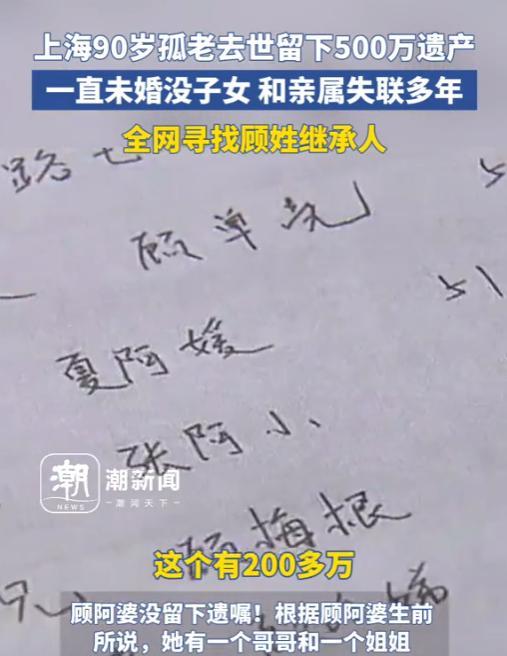 上海90岁孤老去世留下500万遗产
一直未婚没子女 和亲属失联多年
全网寻找顾姓继承人
路七
51
顾单亮
51
夏阿媛
张阿小
潮
NEWS
潮新闻
潮闻天下
顾梅根
这个有200多万
顾阿婆没留下遗嘱！根据顾阿婆生前
所说，她有一个哥哥和一个姐姐